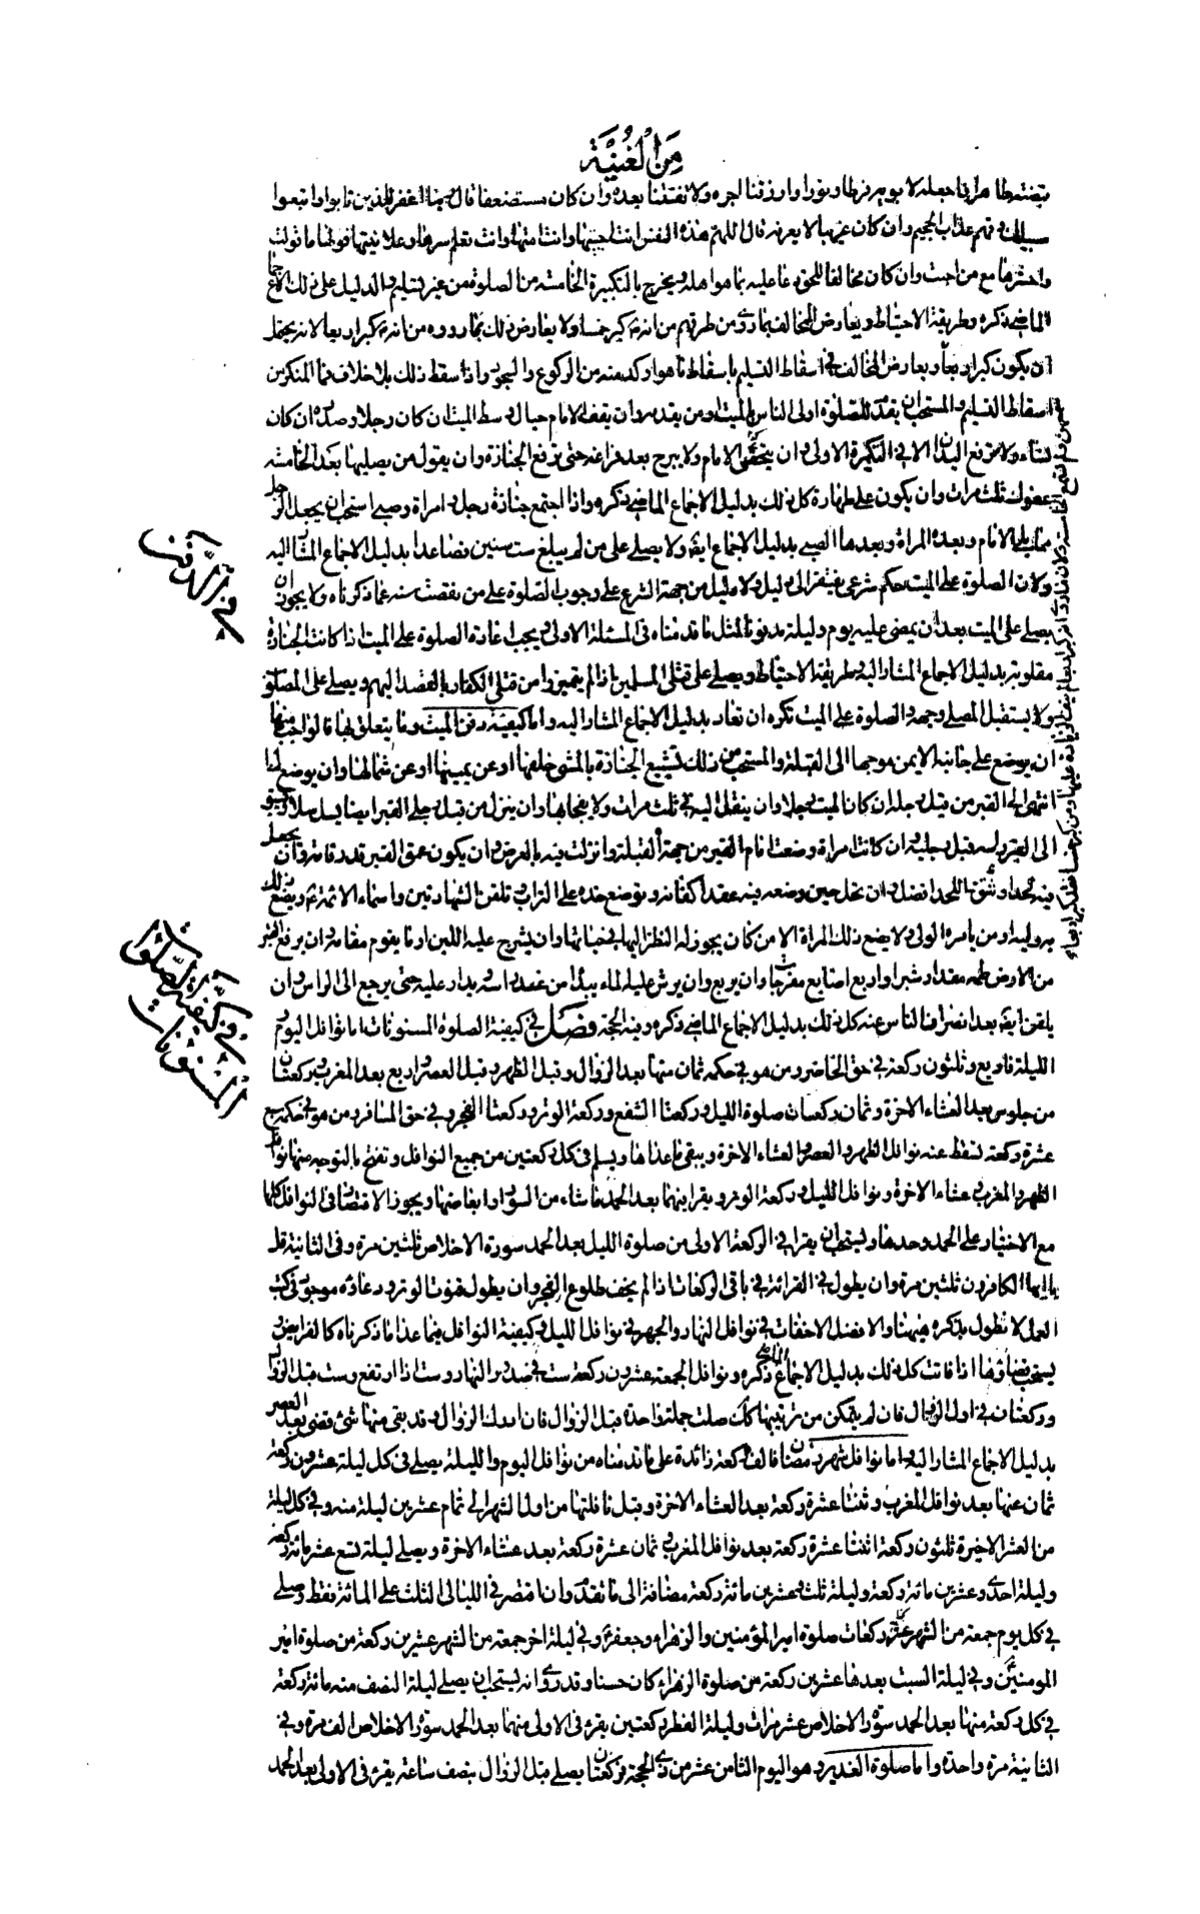 مِنَ الْغُنْيَة
فاجعله لابويه فرطا ونورا وارزقنا اجره ولا تفتنا بعده وان كان مستضعفا قال ربنا اغفر للذين تابوا واتبعوا
سبيلك وقهم عذاب الجحيم وان كان غريبا لا يعرفه قال اللهم هذه النفس انت احييتها وانت امتها وانت تعلم سرها وعلانيتها فولها ما تولت
واحشرها مع من احبت وان كان مخالفا للحق دعا عليه بما هو اهله ويخرج بالتكبيرة الخامسة من الصلوة من غير تسليم والدليل على ذلك الاجماع
الماضي ذكره وطريقة الاحتياط ويعارض المخالف بما روى من طرقهم من انه كبر خمسا ولا يعارض ذلك بما رووه من انه كبر اربعا لانه يحتمل
ان يكون كبر اربعا ويعارض المخالف في اسقاط التسليم باسقاط ما هو اوكد منه من الركوع والسجود واذا سقط ذلك بلا خلاف فما المنكر من
اسقاط التسليم والمستحب ان يقدم للصلوة اولى الناس بالميت او من يقدمه وان يقف الامام حيال وسط الميت ان كان رجلا وصدره ان كان
ولا ترفع اليدان الا في التكبيرة الاولى وان يتحفى الامام ولا يبرح بعد فراغه حتى ترفع الجنازة وان يقول من يصليها بعد الخامسة
عفوك ثلث مرات وان يكون على طهارة كل ذلك بدليل الاجماع الماضي ذكره واذا اجتمع جنازة رجل وامراة وصبي استحب ان يجعل الرجل
مما يلي الامام وبعده المراة وبعدها الصبي بدليل الاجماع ايضا ولا يصلى على من لم يبلغ ست سنين فصاعدا بدليل الاجماع المشار اليه
ولان الصلوة على الميت حكم شرعي يفتقر الى دليل ولا دليل من جهة الشرع على وجوب الصلوة على من نقصت سنه عما ذكرناه ولا يجوز ان
يصلى على الميت بعد ان يمضي عليه يوم وليلة مدفونا لمثل ما قدمناه في المسئلة الاولى ويجب اعادة الصلوة على الميت اذا كانت الجنازة
مقلوبة بدليل الاجماع المشار اليه وطريقة الاحتياط ويصلى على قتلى المسلمين اذا لم يتميزوا من قتلى الكفار بالقصد اليهم ويصلى على المصلوب
ولا يستقبل المصلي وجهه والصلوة على الميت تكره ان تعاد بدليل الاجماع المشار اليه واما كيفية دفن الميت وما يتعلق بها فالواجب منها
ان يوضع على جانبه الايمن موجها الى القبلة والمستحب من ذلك تشييع الجنازة بالمشي خلفها او عن يمينها او عن شمالها وان يوضع اذا
انتهى الى القبر من قبل رجله ان كان الميت رجلا وان ينقل اليه في ثلث مرات ولا يفجا بها وان ينزل من قبل رجلي القبر ايضا ويسل سلا ويسبق
الى القبر راسه قبل رجليه وان كانت امراة وضعت امام القبر من جهة القبلة وانزلت فيه بالعرض وان يكون عمق القبر قدر قامة وان يجعل
فيه لحدا وشق واللحد افضل وان تحل حين وضعه فيه عقد اكفانه ويوضع خده على التراب ويلقن الشهادتين واسماء الائمة ع ويصنع ذلك
به وليه او من يامره الولي ولا يضع ذلك المراة الا من كان يجوز له النظر اليها في حياتها وان يشرج عليه اللبن او ما يقوم مقامه وان يرفع القبر
من الارض مقدار شبر او اربع اصابع مفرجات وان يربع وان يرش عليه الماء يبدا من عند راسه يدار عليه حتى يرجع الى الراس وان
يلقن ايضا بعد انصراف الناس عنه كل ذلك بدليل الاجماع الماضي ذكره وفيه الحجة فصل في كيفية الصلوة المسنونات اما نوافل اليوم و
الليلة فاربع وثلثون ركعة في حق الحاضر ومن هو في حكمه ثمان منها بعد الزوال وقبل الظهر وقبل العصر واربع بعد المغرب وركعتان
من جلوس بعد العشاء الاخرة وثمان ركعات صلوة الليل وركعتا الشفع وركعة الوتر وركعتا الفجر وفي حق المسافر ومن هو في حكمه سبع
عشرة ركعة تسقط عنه نوافل الظهر والعصر والعشاء الاخرة ويبقى ما عداها ويسلم في كل ركعتين من جميع النوافل وتفتتح بالتوجه منها نوافل
الظهر والمغرب وعشاء الاخرة ونوافل الليل وركعة الوتر ويقرا فيهما بعد الحمد ما شاء من السور او ابعاضها ويجوز الاقتصار في النوافل كلها
مع الاختيار على الحمد وحدها ويستحب ان يقرا في الركعة الاولى من صلوة الليل بعد الحمد سورة الاخلاص ثلثين مرة وفي الثانية قل
يا ايها الكافرون ثلثين مرة وان يطول في القرائة في باقي الركعات اذا لم يخف طلوع الفجر وان يطول قنوت الوتر ودعاؤه موجود في كتب
العمل لا نطول بذكره هيهنا والافضل الاخفات في نوافل النهار والجهر في نوافل الليل وكيفية النوافل فيما عدا ما ذكرناه كالفرايض و
يستحب قضاؤها اذا فاتت كل ذلك بدليل الاجماع الماضي ذكره ونوافل الجمعة عشرون ركعة ست في صدر النهار وست اذا ارتفع وست قبل الزوال
وركعتان في اول الزوال فان لم يتمكن من ترتيبها كذلك صلت جملة واحدة قبل الزوال فان ادرك الزوال وقد بقي منها شئ قضى بعد العصر
بدليل الاجماع المشار اليه واما نوافل شهر رمضان فالف ركعة زائدة على ما قدمناه من نوافل اليوم والليلة يصلى في كل ليلة عشرون ركعة
ثمان عنها بعد نوافل المغرب وثنتا عشرة ركعة بعد العشاء الاخرة وقبل نافلتها من اول الشهر الى تمام عشرين ليلة منه وفي كل ليلة
من العشر الاخيرة ثلثون ركعة اثنتا عشرة ركعة بعد نوافل المغرب وثمان عشرة ركعة بعد عشاء الاخرة ويصلي ليلة تسع عشر مائة ركعة
وليلة احدى وعشرين مائة ركعة وليلة ثلث وعشرين مائة ركعة مضافة الى ما تقدم وان اقتصر في الليالي الثلث على المائة فقط وصلى
في كل يوم جمعة من الشهر عشر ركعات صلوة امير المؤمنين والزهراء وجعفر ع وفي ليلة اخر جمعة من الشهر عشرين ركعة من صلوة امير
المومنين وفي ليلة السبت بعدها عشرين ركعة من صلوة الزهراء كان حسنا وقد روى انه يستحب ان يصلي ليلة النصف منه مائة ركعة
في كل ركعة منها بعد الحمد سورة الاخلاص عشر مرات وليلة الفطر ركعتين يقرء في الاولى منهما بعد الحمد سورة الاخلاص الف مرة وفي
الثانية مرة واحدة واما صلوة الغدير وهو اليوم الثامن عشر من ذي الحجة فركعتان يصلي قبل الزوال بنصف ساعة يقرء في الاولى بعد الحمد
في الدَّفن
في كيفية الصَّلوة
المسنونات